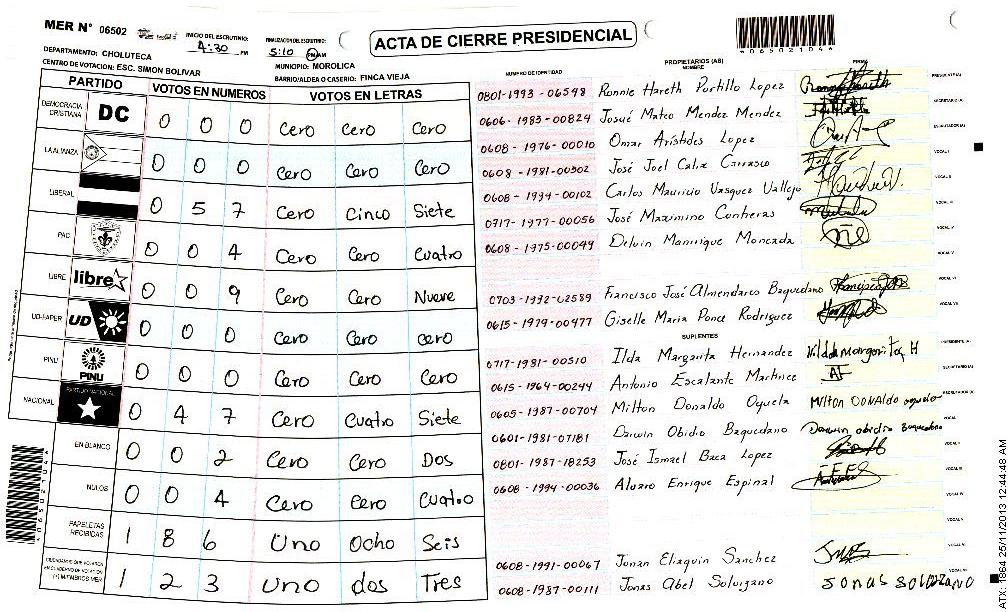 MER N° 06502
INICIO DEL ESCRUTINIO: 4:30 PM
FINALIZACION DEL ESCRUTINIO: 5:10 PM AM
ACTA DE CIERRE PRESIDENCIAL
*06502104*
DEPARTAMENTO: CHOLUTECA
MUNICIPIO: MOROLICA
CENTRO DE VOTACION: ESC. SIMON BOLIVAR
BARRIO/ALDEA O CASERIO: FINCA VIEJA
PARTIDO VOTOS EN NUMEROS VOTOS EN LETRAS
DEMOCRACIA CRISTIANA DC 0 0 0 Cero Cero Cero
LA ALIANZA 0 0 0 Cero Cero Cero
LIBERAL 0 5 7 Cero Cinco Siete
PAC 0 0 4 Cero Cero Cuatro
LIBRE libre 0 0 9 Cero Cero Nueve
UD-FAPER UD 0 0 0 Cero Cero Cero
PINU PINU 0 0 0 Cero Cero Cero
NACIONAL 0 4 7 Cero Cuatro Siete
EN BLANCO 0 0 2 Cero Cero Dos
NULOS 0 0 4 Cero Cero Cuatro
PAPELETAS RECIBIDAS 1 8 6 Uno Ocho Seis
1 2 3 Uno dos Tres
PROPIETARIOS (AS)
NUMERO DE IDENTIDAD NOMBRE FIRMA
0801-1993-06598 Ronnie Hareth Portillo Lopez
0606-1983-00824 Josué Mateo Mendez Mendez
0608-1976-00010 Omar Arístides Lopez
0608-1981-00502 José Joel Calix Carrasco
0608-1994-00102 Carlos Mauricio Vasquez Vallejo
0717-1977-00056 José Maximino Contreras
0608-1975-00049 Delvin Manrique Moncada
0703-1992-02589 Francisco José Almendares Baquedano
0615-1979-00477 Giselle Maria Ponce Rodriguez
SUPLENTES
0717-1981-00510 Ilda Margarita Hernandez
0615-1964-00244 Antonio Escalante Martinez AF
0605-1987-00704 Milton Donaldo Oquela
0601-1981-07181 Darwin Obidio Baquedano Darwin obidio Baquedano
0801-1987-18253 José Ismael Baca Lopez
0608-1994-00036 Alvaro Enrique Espinal
0608-1991-00067 Jonan Eliaquin Sanchez
0608-1987-00111 Jonas Abel Solorzano JONAS SOLORZANO
*06502104*
ATX1864 25/11/2013 12:44:48 AM